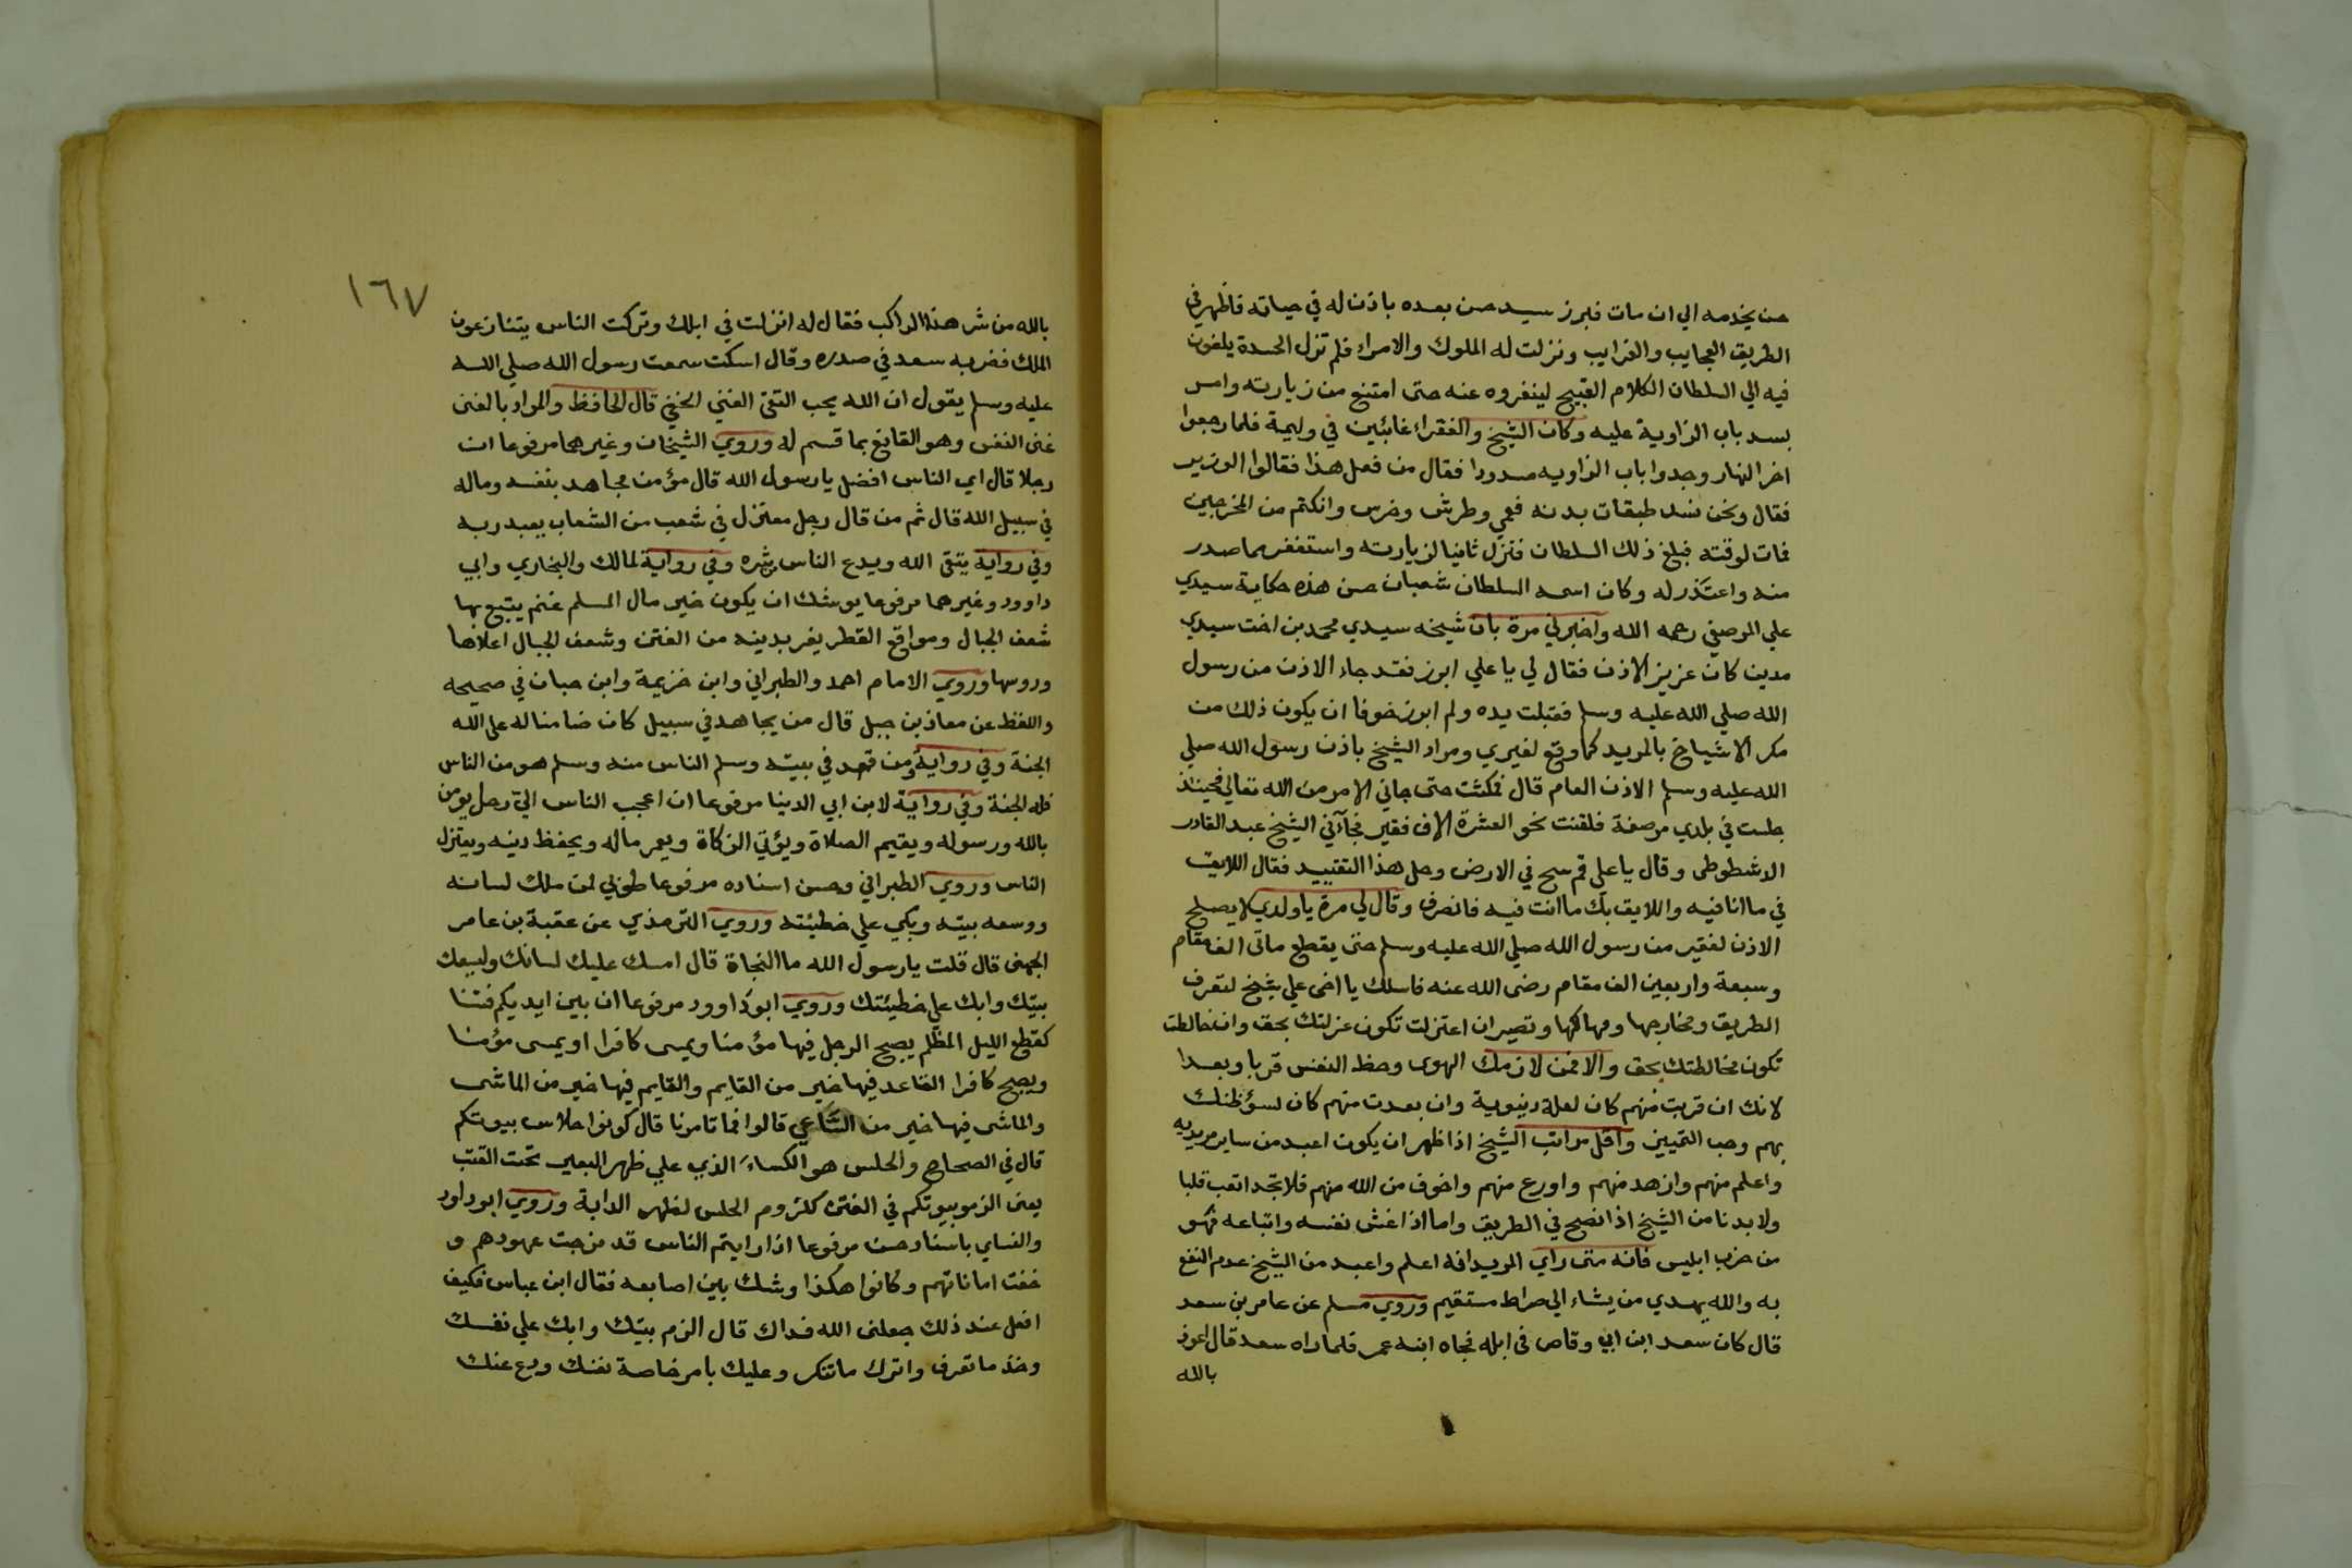 حسن يخدمه الي ان مات فبرز سيد حسن بعده باذن له في حياته فاظهر في
الطريق العجايب والغرايب ونزلت له الملوك والامراء فلم تزل الحسدة يلغون
فيه الي السلطان الكلام القبيح لينفروه عنه حتى امتنع من زيارته وامر
بسد باب الزاوية عليه وكان الشيخ والفقراء غائبين في وليمة فلما رجعوا
اخر النهار وجدوا باب الزاويه مسدودا فقال من فعل هذا فقالوا الوزير
فقال ونحن نسد طبقات بدنه فعمي وطرش وخرس وانكتم من المخرجين
فمات لوقته فبلغ ذلك السلطان فنزل ثانيا لزيارته واستغفر مما صدر
منه واعتذر له وكان اسمه السلطان شعبان حسن هذه حكاية سيدي
علي المرصفي رحمه الله واخبرني مرة بان شيخه سيدي محمد بن اخت سيدي
مدين كان عزيز الاذن فقال لي يا علي ابرز فقد جاء الاذن من رسول
الله صلي الله عليه وسلم فقبلت يده ولم ابرز خوفا ان يكون ذلك من
مكر الاشياخ بالمريد كما وقع لغيري ومراد الشيخ باذن رسول الله صلي
الله عليه وسلم الاذن العام قال فمكثت حتى جاني الامر من الله تعالي فحينئذ
جلست في بلدي مرصفة فلقنت نحو العشرة الاف فقير فجآءني الشيخ عبد القادر
الدشطوطى وقال يا علي قم سح في الارض وحل هذا التقييد فقال اللايق
في ما انا فيه واللايق بك ما انت فيه فانصرف وقال لي مرة يا ولدي لا يصلح
الاذن لفقير من رسول الله صلي الله عليه وسلم حتى يقطع ماتى الف مقام
وسبعة واربعين الف مقام رضى الله عنه فاسلك يا اخى علي شيخ لتعرف
الطريق ومخارجها ومهالكها وتصير ان اعتزلت تكون عزلتك بحق وان خالطت
تكون مخالطتك بحق والا فمن لازمك الهوى وحظ النفس قربا وبعدا
لانك ان قربت منهم كان لعلة دنيوية وان بعدت منهم كان لسؤ ظنك
بهم وحب التمييز واقل مراتب الشيخ اذا ظهر ان يكون اعبد من ساير مريديه
واعلم منهم وازهد منهم واورع منهم واخوف من الله منهم فلا تجد اتعب قلبا
ولا بدنا من الشيخ اذا نصح في الطريق واما اذا غش نفسه واتباعه فهو
من حزب ابليس فانه متى راي المريد انه اعلم واعبد من الشيخ عدم النفع
به والله يهدي من يشاء الي صراط مستقيم وروي مسلم عن عامر بن سعد
قال كان سعد ابن ابي وقاص فى ابله فجاه ابنه عمر فلما راه سعد قال اعوذ
بالله
١٦٧
بالله من شر هذا الراكب فقال له انزلت في ابلك وتركت الناس يتنازعون
الملك فضربه سعد في صدره وقال اسكت سمعت رسول الله صلي الله
عليه وسلم يقول ان الله يحب التقى الغني الخفي قال الحافظ والمراد بالغنى
غنى النفس وهو القانع بما قسم له وروي الشيخان وغيرهما مرفوعا ان
رجلا قال اي الناس افضل يا رسول الله قال مؤمن مجاهد بنفسه وماله
في سبيل الله قال ثم من قال رجل معتزل في شعب من الشعاب يعبد ربه
وفي رواية يتقى الله ويدع الناس شره وفي رواية لمالك والبخاري وابي
داوود وغيرهما مرفوعا يوشك ان يكون خير مال المسلم غنم يتبع بها
شعف الجبال ومواقع القطر يفر بدينه من الفتن وشعف الجبال اعلاها
وروسها وروي الامام احمد والطبراني وابن خزيمة وابن حبان في صحيحه
واللفظ عن معاذ بن جبل قال من يجاهد في سبيل كان ضامنا له على الله
الجنة وفي رواية ومن قعد في بيته وسلم الناس منه وسلم هو من الناس
فله الجنة وفي رواية لابن ابي الدينا مرفوعا ان اعجب الناس الي رجل يومن
بالله ورسوله ويقيم الصلاة ويؤتي الزكاة ويعمر ماله ويحفظ دينه ويعتزل
الناس وروي الطبراني وحسن اسناده مرفوعا طوبي لمن ملك لسانه
ووسعه بيته وبكي علي خطيئته وروي الترمذي عن عقبة بن عامر
الجهنى قال قلت يا رسول الله ما النجاة قال امسك عليك لسانك وليسعك
بيتك وابك علي خطيئتك وروي ابو داوود مرفوعا ان بين ايديكم فتنا
كقطع الليل المظلم يصبح الرجل فيها مؤمنا ويمسى كافرا او يمسى مؤمنا
ويصبح كافرا القاعد فيها خير من القايم والقايم فيها خير من الماشى
والماشى فيها خير من الساعي قالوا فما تامرنا قال كونوا احلاس بيوتكم
قال في الصحاح والحلس هو الكساء الذي علي ظهر البعير تحت القتب
يعنى الزموا بيوتكم في الفتن كلزوم الحلس لظهر الدابة وروي ابو داود
والنساي باسناد حسن مرفوعا اذا رايتم الناس قد مزجت عهودهم و
خفت اماناتهم وكانوا هكذا وشبك بين اصابعه فقال ابن عباس فكيف
افعل عند ذلك جعلنى الله فداك قال الزم بيتك وابك علي نفسك
وخذ ما تعرف واترك ما تنكر وعليك بامر خاصة نفسك ودع عنك